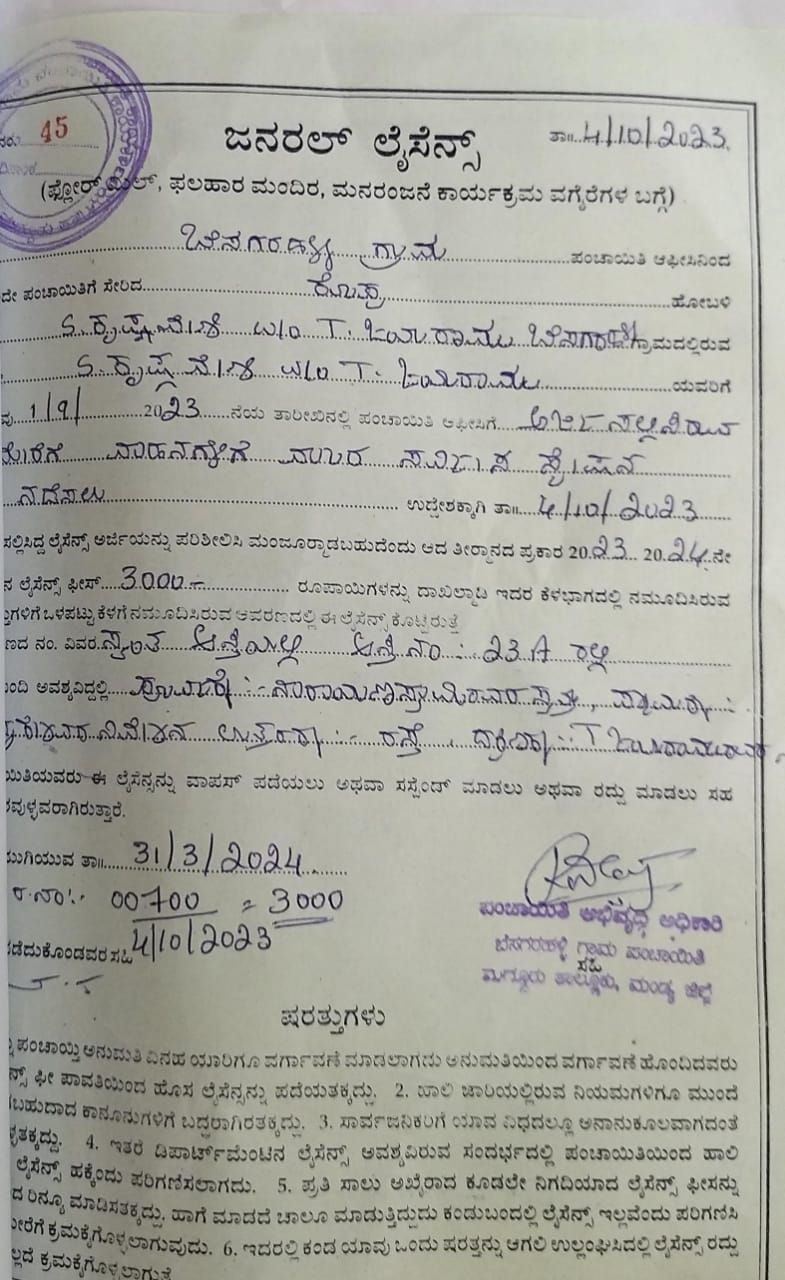 45
ತಾ॥ 4/10/2023
ಜನರಲ್ ಲೈಸೆನ್ಸ್
(ಫ್ಲೋರ್ ಮಿಲ್, ಫಲಹಾರ ಮಂದಿರ, ಮನರಂಜನೆ ಕಾರ್ಯಕ್ರಮ ವಗೈರೆಗಳ ಬಗ್ಗೆ)
ಬೆಸಗರಹಳ್ಳಿ ಗ್ರಾಮ ಪಂಚಾಯಿತಿ ಆಫೀಸಿನಿಂದ
ದೇ ಪಂಚಾಯಿತಿಗೆ ಸೇರಿದ ಕೊಪ್ಪ ಹೋಬಳಿ
S. ಕೃಷ್ಣವೇಣಿ w/o T. ಜಯರಾಮು ಬೆಸಗರಹಳ್ಳಿ ಗ್ರಾಮದಲ್ಲಿರುವ
S. ಕೃಷ್ಣವೇಣಿ w/o T. ಜಯರಾಮು ಯವರಿಗೆ
ವು 1/9/ 2023 ನೆಯ ತಾರೀಖಿನಲ್ಲಿ ಪಂಚಾಯಿತಿ ಆಫೀಸಿಗೆ ಅರ್ಜಿ ಸಲ್ಲಿಸಿರುವ
ಮೇರೆಗೆ ವಾಹನಗಳಿಗೆ ವಾಟರ್ ಸರ್ವಿಸ್
ನಡೆಸಲು ಉದ್ದೇಶಕ್ಕಾಗಿ ತಾ॥ 4/10/2023
ಸಲ್ಲಿಸಿದ್ದ ಲೈಸೆನ್ಸ್ ಅರ್ಜಿಯನ್ನು ಪರಿಶೀಲಿಸಿ ಮಂಜೂರ್‍ಮಾಡಬಹುದೆಂದು ಆದ ತೀರ್ಮಾನದ ಪ್ರಕಾರ 2023 2024 ನೇ
ನ ಲೈಸೆನ್ಸ್ ಫೀಸ್ 3000 ರೂಪಾಯಿಗಳನ್ನು ದಾಖಲ್ಮಾಡಿ ಇದರ ಕೆಳಭಾಗದಲ್ಲಿ ನಮೂದಿಸಿರುವ
ತ್ತುಗಳಿಗೆ ಒಳಪಟ್ಟು ಕೆಳಗೆ ನಮೂದಿಸಿರುವ ಆವರಣದಲ್ಲಿ ಈ ಲೈಸೆನ್ಸ್ ಕೊಟ್ಟಿರುತ್ತೆ
ಣದ ನಂ. ವಿವರ ಸ್ವಂತ ಆಸ್ತಿಯಲ್ಲಿ ಆಸ್ತಿ ನಂ: 23A ರಲ್ಲಿ
ಬಂದಿ ಅವಶ್ಯವಿದ್ದಲ್ಲಿ ಪೂರ್ವಕ್ಕೆ:- ನಾರಾಯಣಸ್ವಾಮಿರವರ ಸ್ವತ್ತು, ಪಶ್ಚಿಮಕ್ಕೆ:
ನಿವೇಶನ ಉತ್ತರಕ್ಕೆ:- ರಸ್ತೆ, ದಕ್ಷಿಣಕ್ಕೆ: T ಜಯರಾಮುರವರ
ಯಿತಿಯವರು ಈ ಲೈಸೆನ್ಸನ್ನು ವಾಪಸ್ ಪಡೆಯಲು ಅಥವಾ ಸಸ್ಪೆಂಡ್ ಮಾಡಲು ಅಥವಾ ರದ್ದು ಮಾಡಲು ಸಹ
ರವುಳ್ಳವರಾಗಿರುತ್ತಾರೆ.
ಮುಗಿಯುವ ತಾ॥ 31/3/2024
ರ.ನಂ:- 00700 = 3000
4/10/2023
ಪಡೆದುಕೊಂಡವರ ಸಹಿ
ಪಂಚಾಯಿತಿ ಅಭಿವೃದ್ಧಿ ಅಧಿಕಾರಿ
ಬೆಸಗರಹಳ್ಳಿ ಗ್ರಾಮ ಪಂಚಾಯಿತಿ
ಸಹಿ
ಮದ್ದೂರು ತಾಲ್ಲೂಕು, ಮಂಡ್ಯ ಜಿಲ್ಲೆ
ಷರತ್ತುಗಳು
ಪಂಚಾಯ್ತಿ ಅನುಮತಿ ವಿನಹ ಯಾರಿಗೂ ವರ್ಗಾವಣೆ ಮಾಡಲಾಗದು ಅನುಮತಿಯಿಂದ ವರ್ಗಾವಣೆ ಹೊಂದಿದವರು
ನ್ಸ್ ಫೀ ಪಾವತಿಯಿಂದ ಹೊಸ ಲೈಸೆನ್ಸನ್ನು ಪಡೆಯತಕ್ಕದ್ದು. 2. ಹಾಲಿ ಜಾರಿಯಲ್ಲಿರುವ ನಿಯಮಗಳಿಗೂ ಮುಂದೆ
ಬಹುದಾದ ಕಾನೂನುಗಳಿಗೆ ಬದ್ಧರಾಗಿರತಕ್ಕದ್ದು. 3. ಸಾರ್ವಜನಿಕರಿಗೆ ಯಾವ ವಿಧದಲ್ಲೂ ಅನಾನುಕೂಲವಾಗದಂತೆ
ಳತಕ್ಕದ್ದು. 4. ಇತರೆ ಡಿಪಾರ್ಟ್‌ಮೆಂಟಿನ ಲೈಸೆನ್ಸ್ ಅವಶ್ಯವಿರುವ ಸಂದರ್ಭದಲ್ಲಿ ಪಂಚಾಯಿತಿಯಿಂದ ಹಾಲಿ
ಲೈಸೆನ್ಸ್ ಹಕ್ಕೆಂದು ಪರಿಗಣಿಸಲಾಗದು. 5. ಪ್ರತಿ ಸಾಲು ಅಖೈರಾದ ಕೂಡಲೇ ನಿಗದಿಯಾದ ಲೈಸೆನ್ಸ್ ಫೀಸನ್ನು
ದ ರಿನ್ಯೂ ಮಾಡಿಸತಕ್ಕದ್ದು. ಹಾಗೆ ಮಾಡದೆ ಚಾಲೂ ಮಾಡುತ್ತಿದ್ದುದು ಕಂಡುಬಂದಲ್ಲಿ ಲೈಸೆನ್ಸ್ ಇಲ್ಲವೆಂದು ಪರಿಗಣಿಸಿ
ಮೇರೆಗೆ ಕ್ರಮಕೈಗೊಳ್ಳಲಾಗುವುದು. 6. ಇದರಲ್ಲಿ ಕಂಡ ಯಾವು ಒಂದು ಷರತ್ತನ್ನು ಆಗಲಿ ಉಲ್ಲಂಘಿಸಿದಲ್ಲಿ ಲೈಸೆನ್ಸ್ ರದ್ದು
ಲ್ಲದೆ ಕ್ರಮಕೈಗೊಳ್ಳಲಾಗುತ್ತೆ